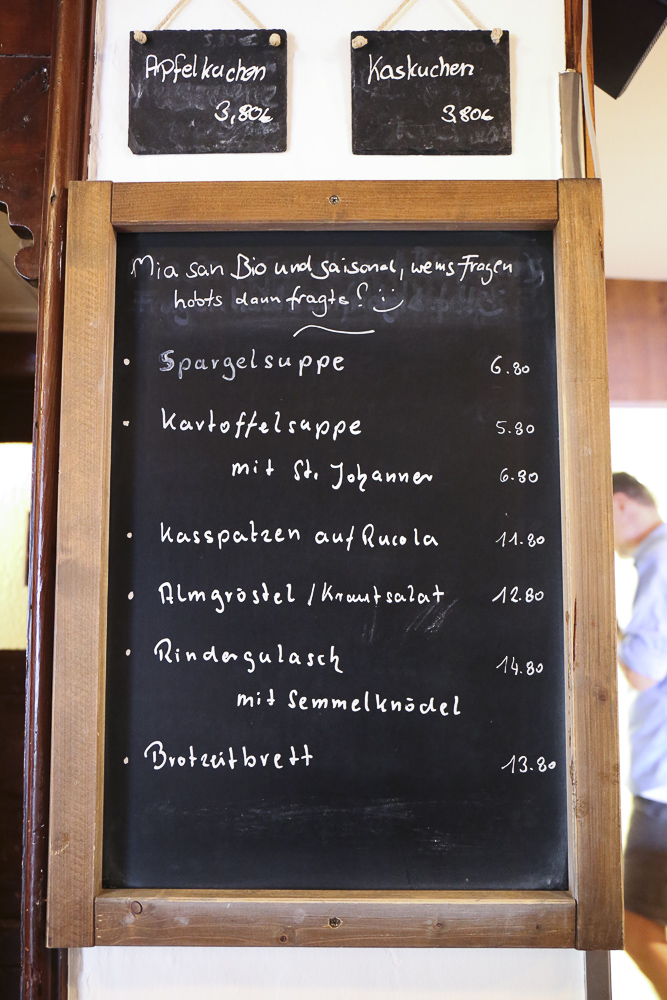 Apfelkuchen
3,80€
Kaskuchen
3,80€
Mia san Bio und saisonal, wems Fragen
habts dann fragts! :)
Spargelsuppe 6.80
Kartoffelsuppe 5.80
mit St. Johanner 6.80
Kasspatzen auf Rucola 11.80
Almgröstel / Krautsalat 12.80
Rindergulasch 14.80
mit Semmelknödel
Brotzeitbrett 13.80